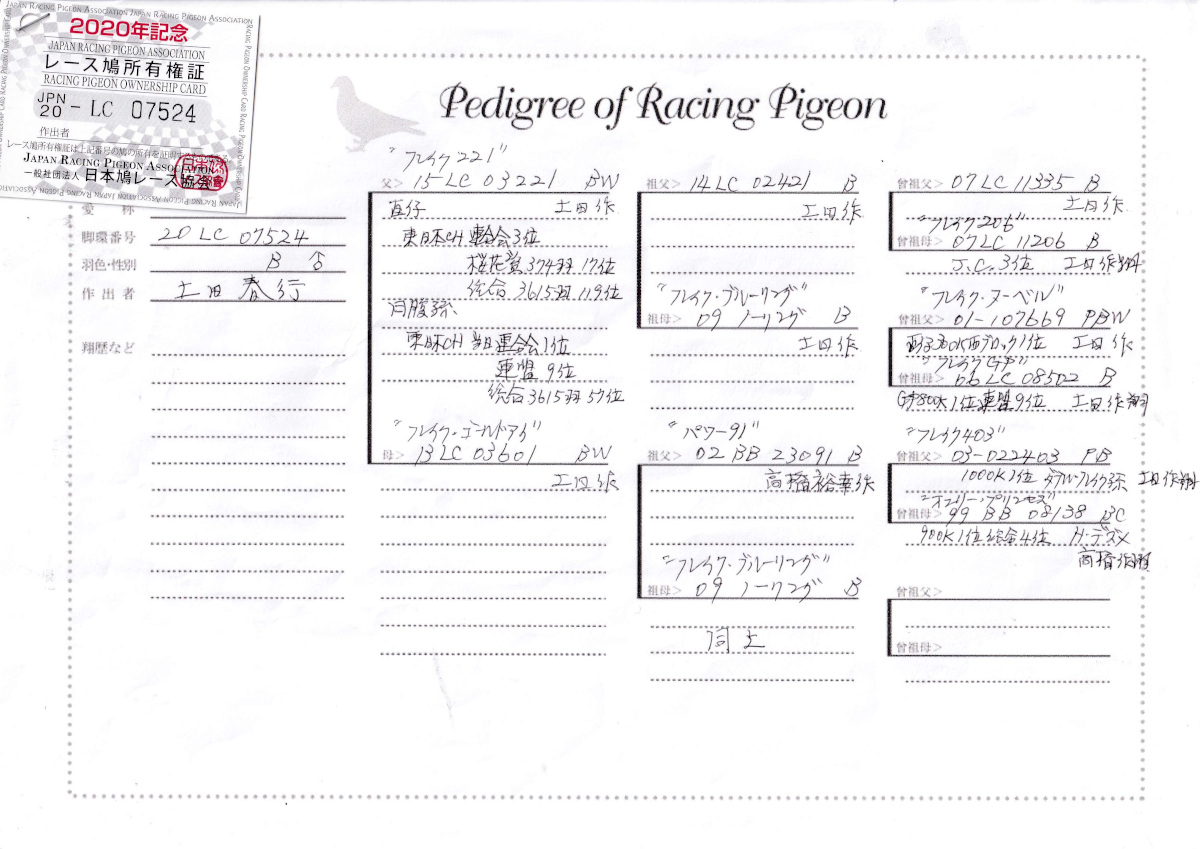 JAPAN RACING PIGEON ASSOCIATION JAPAN RACING PIGEON ASSOCIATION
2020年記念
JAPAN RACING PIGEON ASSOCIATION
レース鳩所有権証
RACING PIGEON OWNERSHIP CARD
JPN
20 - LC 07524
作出者
レース鳩所有権証は上記番号の鳩の所有を証明
JAPAN RACING PIGEON ASSOCIATION
一般社団法人 日本鳩レース協会
Pedigree of Racing Pigeon
愛 称
脚環番号 20 LC 07524
羽色・性別 B ♀
作 出 者 土田 春行
翔歴など
"フレイク221"
父> 15-LC 03221 BW
直仔 土田作
東日本CH 連合会3位
桜花賞 374羽 17位
総合 3615羽 119位
同腹
東日本CH 当日連合会1位
連盟 9位
総合 3615羽 57位
"フレイク・ゴールドアイ"
母> 13LC 03601 BW
土田作
祖父> 14LC 02421 B
土田作
"フレイク・ブルーリング"
祖母> 09 ノーリング B
土田作
"パワー91"
祖父> 02 BB 23091 B
高橋裕幸作
"フレイク・ブルーリング"
祖母> 09 ノーリング B
同上
曾祖父> 07LC 11335 B
土田作
"フレイク206"
曾祖母> 07LC 11206 B
J.C.3位 土田作翔
"フレイク・ヌーベル"
曾祖父> 01-107669 PBW
ブロック1位 土田作
"フレイクGP"
曾祖母> 06LC 08502 B
GP800K1位連盟9位 土田作翔
"フレイク403"
曾祖父> 03-022403 PB
1000K1位 フレイク系 土田作翔
"オンリー・プリンセス"
曾祖母> 99 BB 08138 BC
900K1位総合4位 H・デズメ
高橋作翔
曾祖父>
曾祖母>